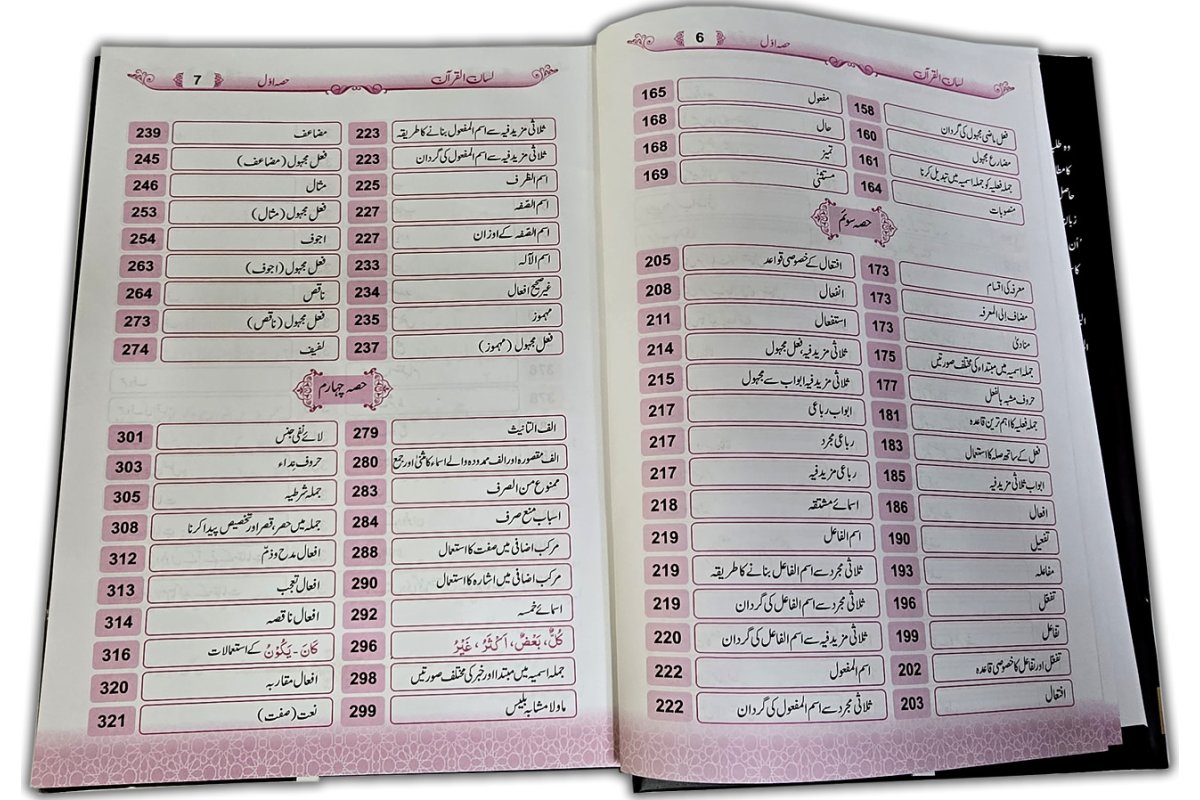 لسان القرآن
حصہ اوّل
6
فعل ماضی مجہول کی گردان 158
مضارع مجہول 160
جملہ فعلیہ کو جملہ اسمیہ میں تبدیل کرنا 161
منصوبات 164
مفعول 165
حال 168
تمیز 168
مستثنٰی 169
حصہ سوئم
معرفہ کی اقسام 173
مضاف اِلی المعرفہ 173
منادیٰ 173
جملہ اسمیہ میں مبتداء کی مختلف صورتیں 175
حروف مشبہ بالفعل 177
جملہ فعلیہ کا اہم ترین قاعدہ 181
فعل کے ساتھ صلہ کا استعمال 183
ابواب ثلاثی مزید فیہ 185
افعال 186
تفعیل 190
مفاعلہ 193
تفعّل 196
تفاعل 199
تفعّل اور تفاعل کا خصوصی قاعدہ 202
افتعال 203
افتعال کے خصوصی قواعد 205
انفعال 208
استفعال 211
ثلاثی مزید فیہ، فعل مجہول 214
ثلاثی مزید فیہ ابواب سے مجہول 215
ابواب رباعی 217
رباعی مجرد 217
رباعی مزید فیہ 217
اسمائے مشتقہ 218
اسم الفاعل 219
ثلاثی مجرد سے اسم الفاعل بنانے کا طریقہ 219
ثلاثی مجرد سے اسم الفاعل کی گردان 219
ثلاثی مزید فیہ سے اسم الفاعل کی گردان 220
اسم المفعول 222
ثلاثی مجرد سے اسم المفعول کی گردان 222
لسان القرآن
حصہ اوّل
7
ثلاثی مزید فیہ سے اسم المفعول بنانے کا طریقہ 223
ثلاثی مزید فیہ سے اسم المفعول کی گردان 223
اسم الظرف 225
اسم الصّفہ 227
اسم الصّفہ کے اوزان 227
اسم الآلہ 233
غیر صحیح افعال 234
مہموز 235
فعل مجہول (مہموز) 237
مضاعف 239
فعل مجہول (مضاعف) 245
مثال 246
فعل مجہول (مثال) 253
اجوف 254
فعل مجہول (اجوف) 263
ناقص 264
فعل مجہول (ناقص) 273
لفیف 274
حصہ چہارم
الف التانیث 279
الف مقصورہ اور الف ممدودہ والے اسماء کا مثنٰی اور جمع 280
ممنوع من الصرف 283
اسباب منع صرف 284
مرکب اضافی میں صفت کا استعمال 288
مرکب اضافی میں اشارہ کا استعمال 290
اسمائے خمسہ 292
كُلٌّ، بَعْضٌ، اَكْثَرُ، غَيْرُ 296
جملہ اسمیہ میں مبتدا اور خبر کی مختلف صورتیں 298
ما و لا مشابہ بلیس 299
لائے نفی جنس 301
حروف نداء 303
جملہ شرطیہ 305
جملہ میں حصر، قصر اور تخصیص پیدا کرنا 308
افعال مدح و ذم 312
افعال تعجب 313
افعال ناقصہ 314
كَانَ - يَكُوْنُ کے استعمالات 316
افعال مقاربہ 320
نعت (صفت) 321